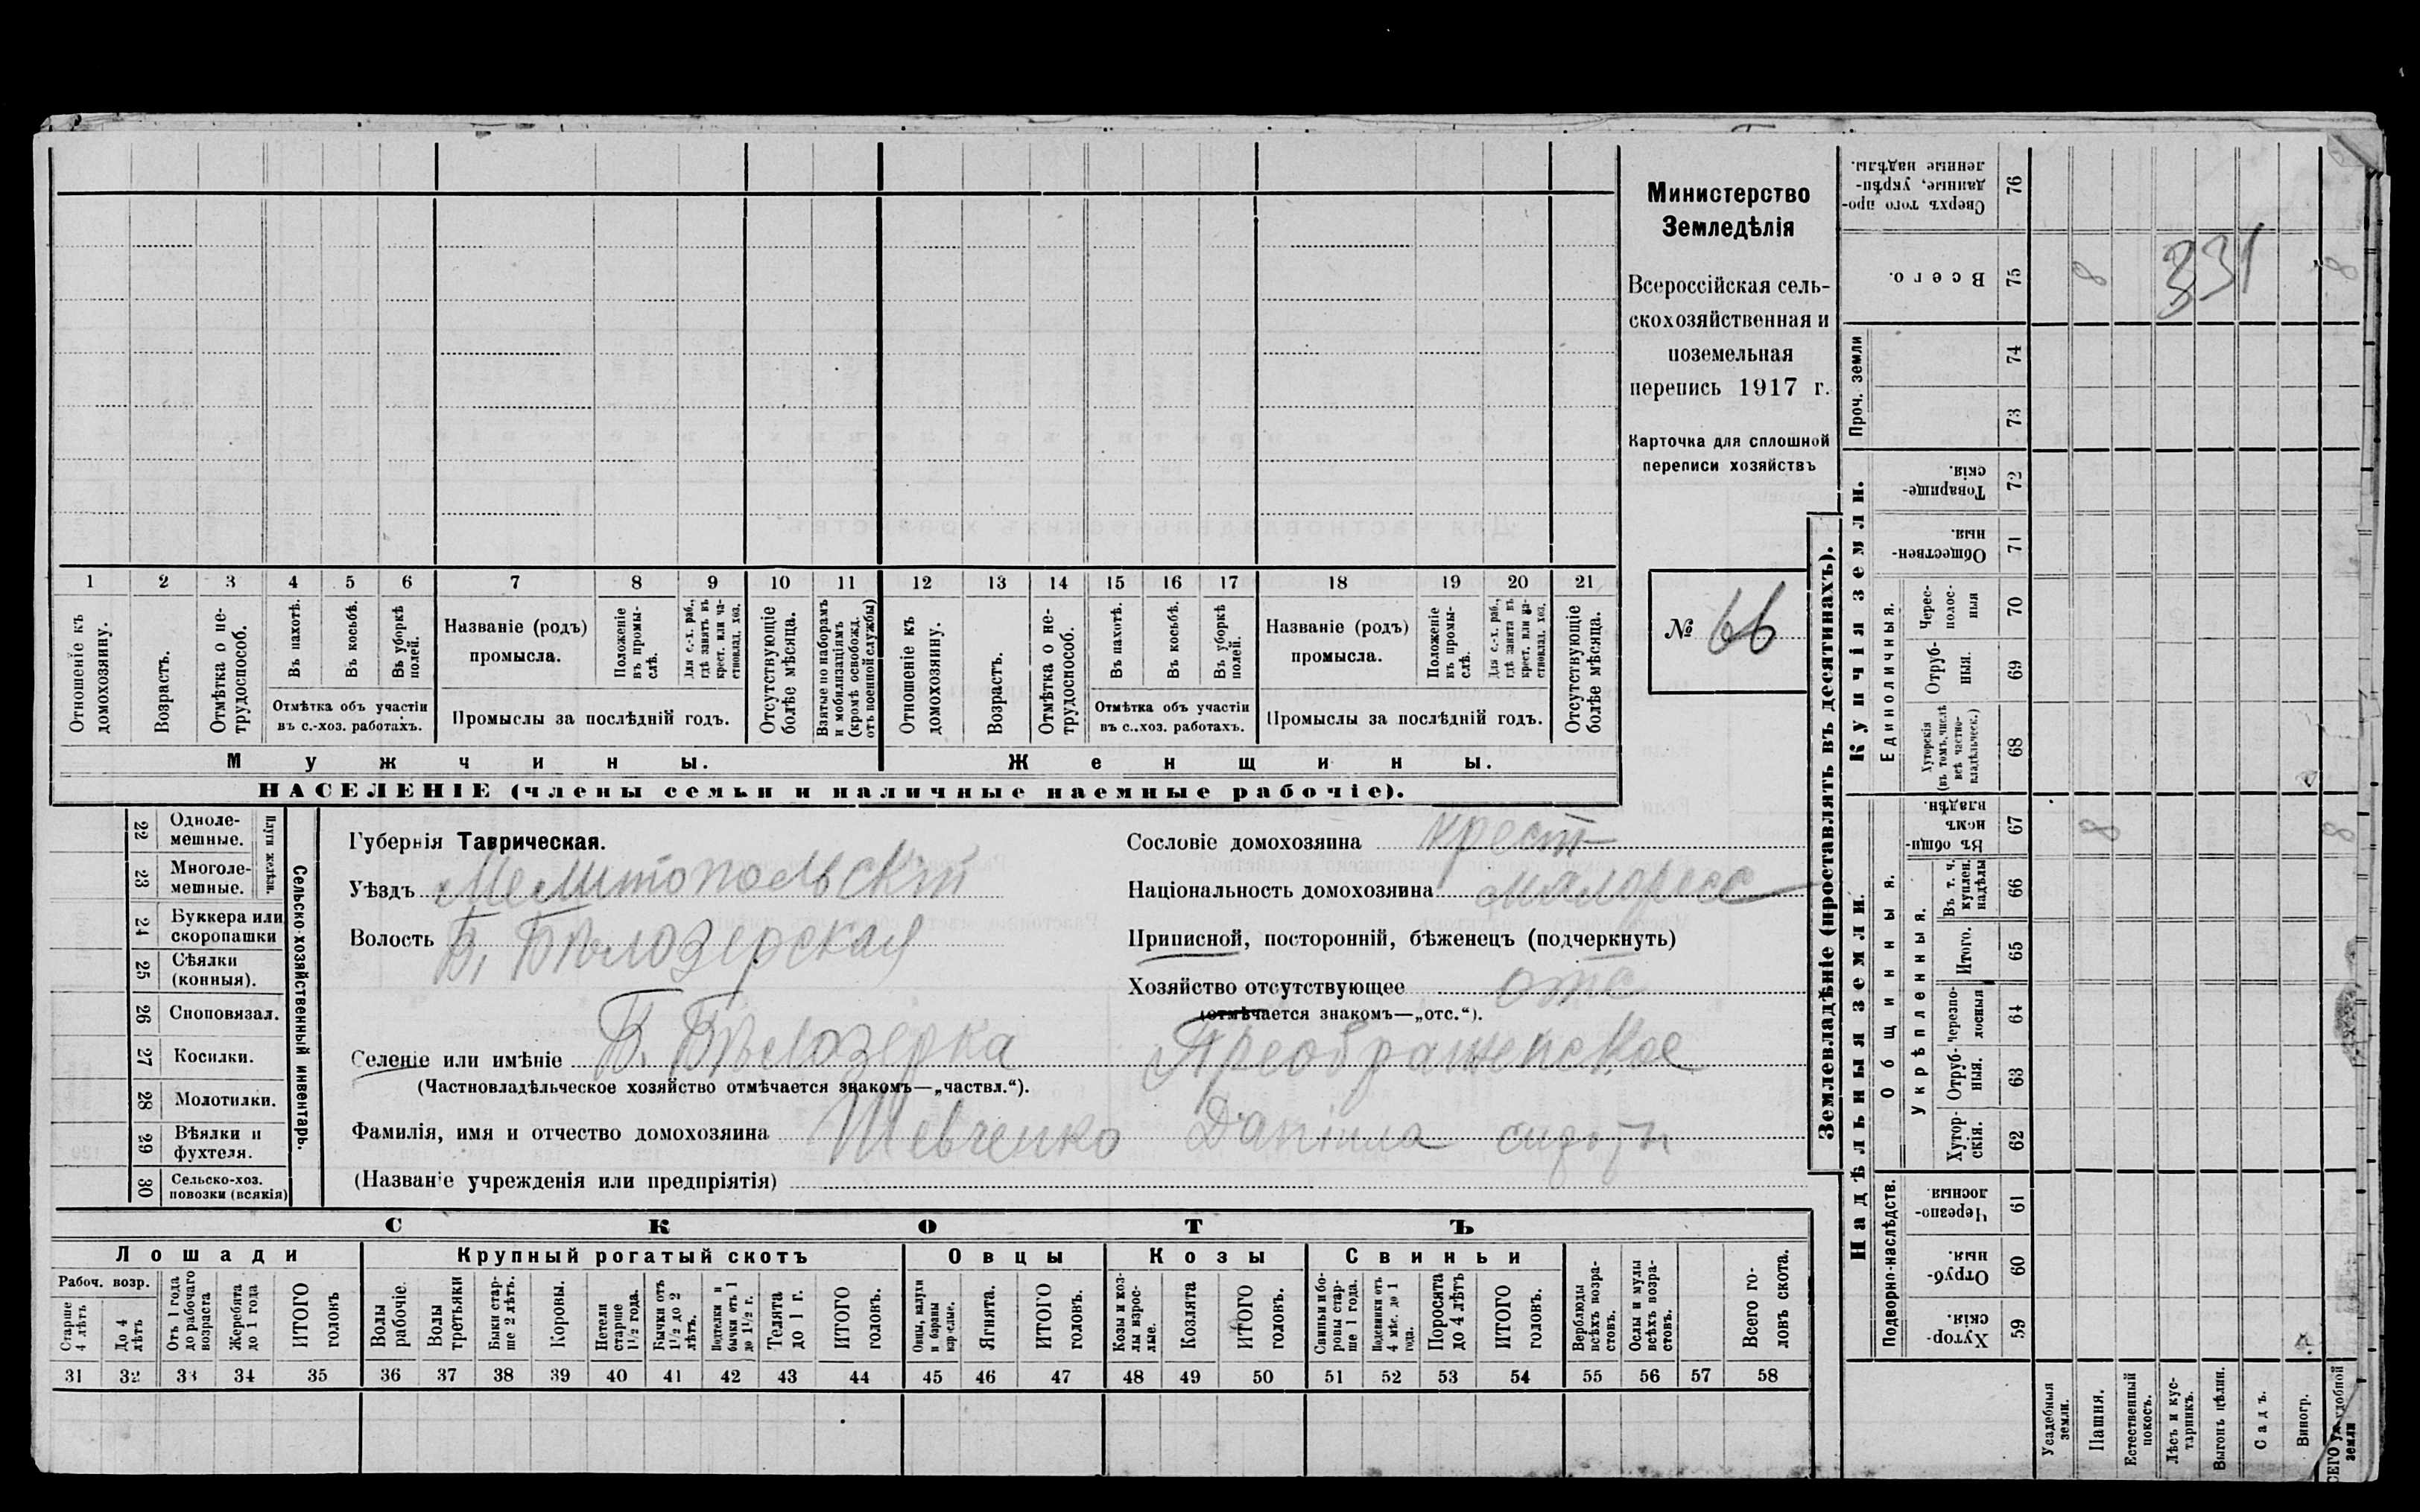 Министерство
Земледѣлія
Всероссійская сель-
скохозяйственная и
поземельная
перепись 1917 г.
Карточка для сплошной
переписи хозяйствъ
№ 66
1 2 3 4 5 6 7 8 9 10 11 12 13 14 15 16 17 18 19 20 21
Отношеніе къ домохозяину.
Возрастъ.
Отмѣтка о не-трудоспособ.
Въ пахотѣ.
Въ косьбѣ.
Въ уборкѣ полей.
Отмѣтка объ участіи
въ с.-хоз. работахъ.
Названіе (родъ)
промысла.
Положеніе въ промы-слѣ.
Для с.-х. раб., гдѣ занятъ въ крест. или ча-стновлад. хоз.
Промыслы за послѣдній годъ.
Отсутствующіе болѣе мѣсяца.
Взятые по наборамъ и мобилизаціямъ (кромѣ освобожд. отъ военной службы)
Отношеніе къ домохозяину.
Возрастъ.
Отмѣтка о не-трудоспособ.
Въ пахотѣ.
Въ косьбѣ.
Въ уборкѣ полей.
Отмѣтка объ участіи
въ с.-хоз. работахъ.
Названіе (родъ)
промысла.
Положеніе въ промы-слѣ.
Для с.-х. раб., гдѣ занята въ крест. или ча-стновлад. хоз.
Промыслы за послѣдній годъ.
Отсутствующіе болѣе мѣсяца.
Мужчины.
Женщины.
НАСЕЛЕНІЕ (члены семьи и наличные наемные рабочіе).
Сельско-хозяйственный инвентарь.
Плуги желѣзн.
22 Одноле-мешные.
23 Многоле-мешные.
24 Буккера или скоропашки
25 Сѣялки (конныя).
26 Сноповязал.
27 Косилки.
28 Молотилки.
29 Вѣялки и фухтеля.
30 Сельско-хоз. повозки (всякія)
Губернія Таврическая.
Уѣздъ Мелитопольскій
Волость Б. Бѣлозерская
Селеніе или имѣніе Б. Бѣлозерка Преображенское
(Частновладѣльческое хозяйство отмѣчается знакомъ—„частвл.“).
Фамилія, имя и отчество домохозяина Шевченко Даніила
(Названіе учрежденія или предпріятія)
Сословіе домохозяина крест
Національность домохозяина малоросс
Приписной, посторонній, бѣженецъ (подчеркнуть)
Хозяйство отсутствующее отс
(отмѣчается знакомъ—„отс.“).
СКОТЪ
Лошади
Крупный рогатый скотъ
Овцы
Козы
Свиньи
Рабоч. возр.
Старше 4 лѣтъ
До 4 лѣтъ
Отъ 1 года до рабочаго возраста
Жеребята до 1 года
ИТОГО головъ
Волы рабочіе.
Волы третьяки
Быки стар-ше 2 лѣтъ.
Коровы.
Нетели старше 1½ года.
Бычки отъ 1½ до 2 лѣтъ.
Подтелки и бычки отъ 1 до 1½ г.
Телята до 1 г.
ИТОГО головъ.
Овцы, валухи и бараны взрослые.
Ягнята.
ИТОГО головъ.
Козы и коз-лы взрос-лые.
Козлята
ИТОГО головъ.
Свиньи и бо-ровы стар-ше 1 года.
Подсвинки отъ 4 мѣс. до 1 года.
Поросята до 4 лѣтъ
ИТОГО головъ.
Верблюды всѣхъ возра-стовъ.
Ослы и мулы всѣхъ возра-стовъ.
Всего го-ловъ скота.
31 32 33 34 35 36 37 38 39 40 41 42 43 44 45 46 47 48 49 50 51 52 53 54 55 56 57 58
Землевладѣніе (проставлять въ десятинахъ).
Сверхъ того про-данные, укрѣп-ленные надѣлы. 76
Всего. 75 8 331 8
Проч. земли
74
73
Купчія земли.
Товарище-скія. 72
Обществен-ныя. 71
Единоличныя.
Черес-полос-ныя 70
Отруб-ныя. 69
Хуторскія (въ томъ числѣ всѣ частно-владѣльческ.) 68
Надѣльныя земли.
Общинныя.
Въ общи-номъ владѣн. 67 8 8
Въ т. ч. куплен. надѣлы 66
Укрѣпленныя.
Итого. 65
Черезпо-лосныя 64
Отруб-ныя. 63
Хутор-скія. 62
Подворно-наслѣдств.
Черезпо-лосныя 61
Отруб-ныя. 60
Хутор-скія. 59
Усадебныя земли.
Пашня.
Естественный покосъ.
Лѣсъ и кус-тарникъ.
Выгонъ цѣлин.
Садъ.
Виногр.